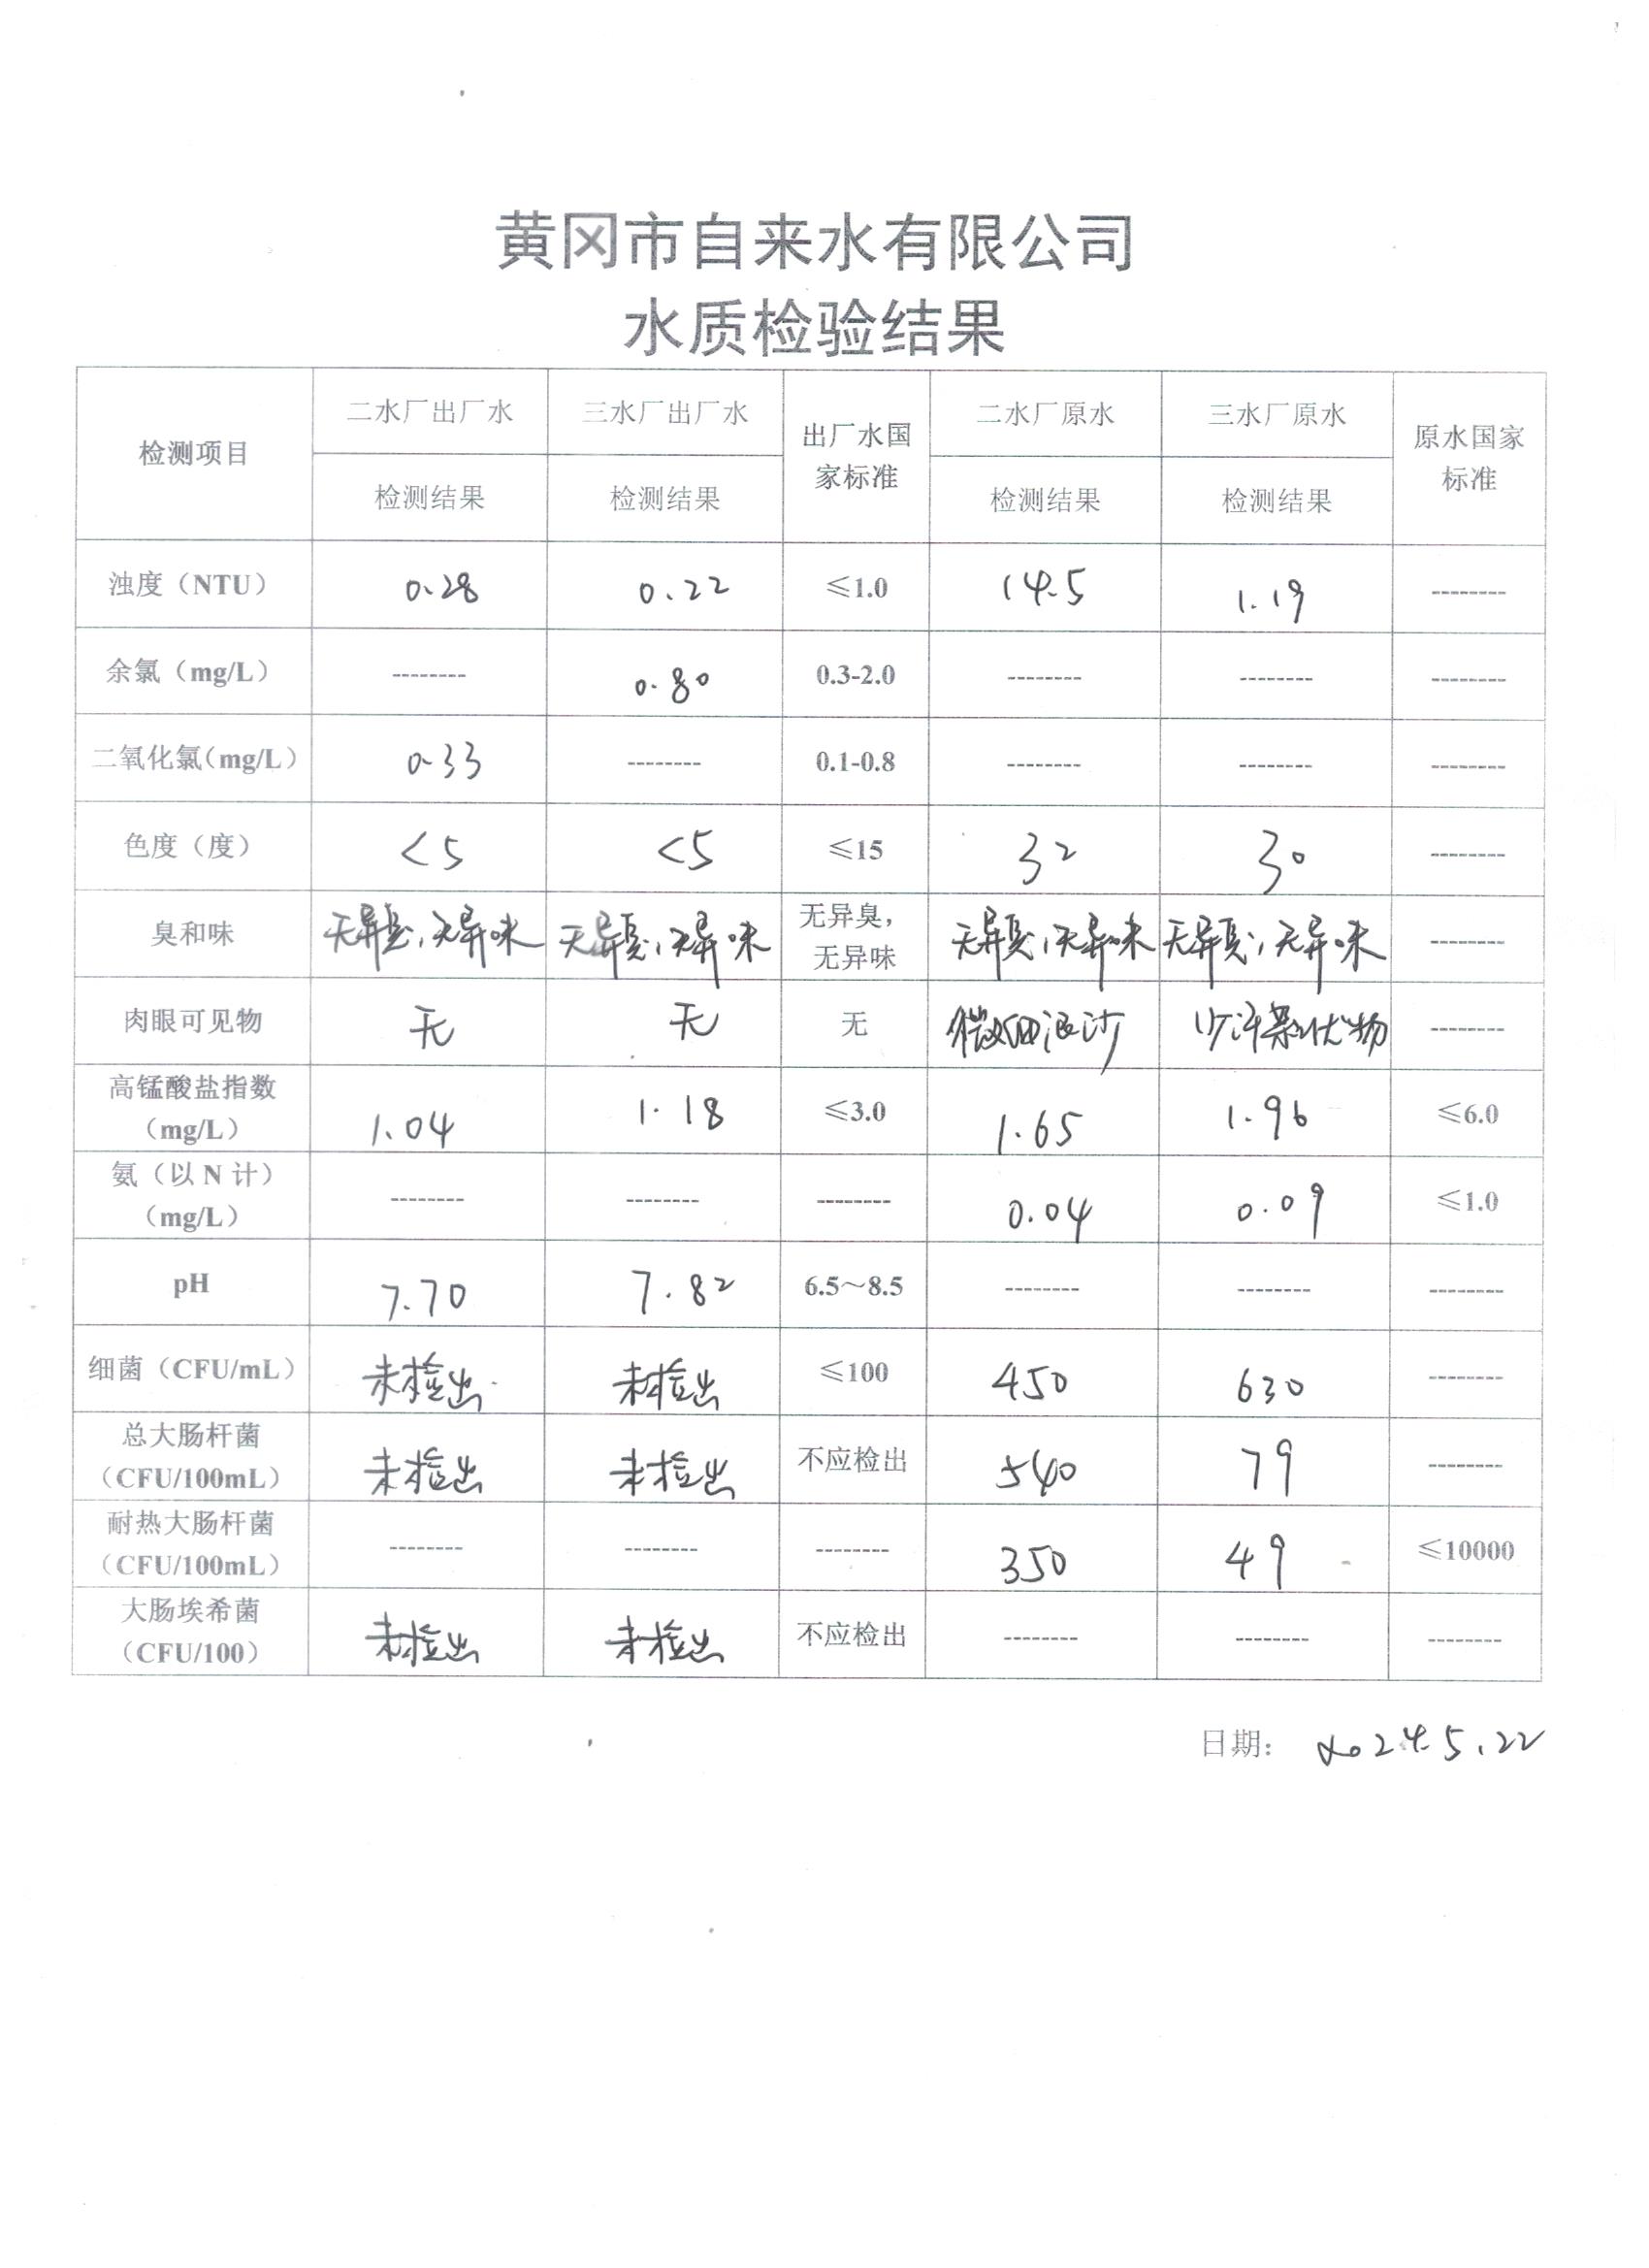 黄冈市自来水有限公司
水质检验结果
检测项目 二水厂出厂水 三水厂出厂水 出厂水国家标准 二水厂原水 三水厂原水 原水国家标准
检测结果 检测结果 检测结果 检测结果
浊度（NTU） 0.28 0.22 ≤1.0 14.5 1.19 --------
余氯（mg/L） -------- 0.80 0.3-2.0 -------- -------- --------
二氧化氯（mg/L） 0.33 -------- 0.1-0.8 -------- -------- --------
色度（度） <5 <5 ≤15 32 30 --------
臭和味 无异臭，无异味 无异臭，无异味 无异臭，无异味 无异臭，无异味 无异臭，无异味 --------
肉眼可见物 无 无 无 微细泥沙 少许悬浮物 --------
高锰酸盐指数（mg/L） 1.04 1.18 ≤3.0 1.65 1.96 ≤6.0
氨（以 N 计）（mg/L） -------- -------- -------- 0.04 0.09 ≤1.0
pH 7.70 7.82 6.5～8.5 -------- -------- --------
细菌（CFU/mL） 未检出 未检出 ≤100 450 630 --------
总大肠杆菌（CFU/100mL） 未检出 未检出 不应检出 540 79 --------
耐热大肠杆菌（CFU/100mL） -------- -------- -------- 350 49 ≤10000
大肠埃希菌（CFU/100） 未检出 未检出 不应检出 -------- -------- --------
日期： 2024.5.22